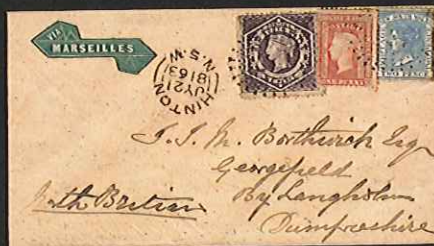 VIA
MARSEILLES
HINTON
JY 21
1863
N.S.W
ONE PENNY
TWO PENCE
J. J. M. Borthwick Esq
Georgefield
By Langholm
Dumfriesshire
North Britain